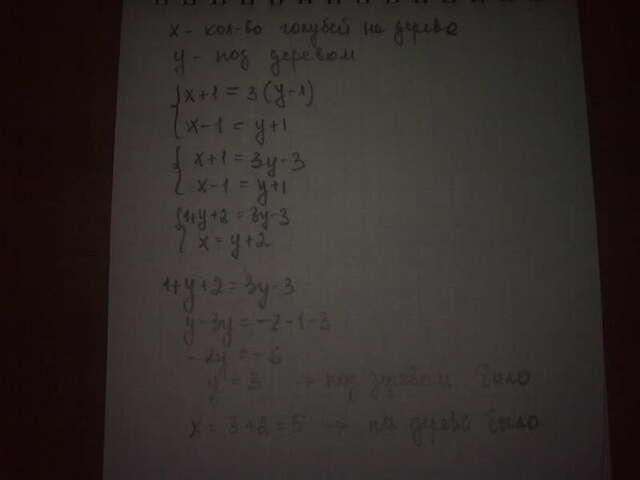 x - кол-во голубей на дерево
y - под деревом
{ x+1 = 3(y-1)
x-1 = y+1
{ x+1 = 3y-3
x-1 = y+1
{ 1+y+2 = 3y-3
x = y+2
1+y+2 = 3y-3
y-3y = -2-1-3
-2y = -6
y = 3 → под деревом было
x = 3+2 = 5 → на дереве было